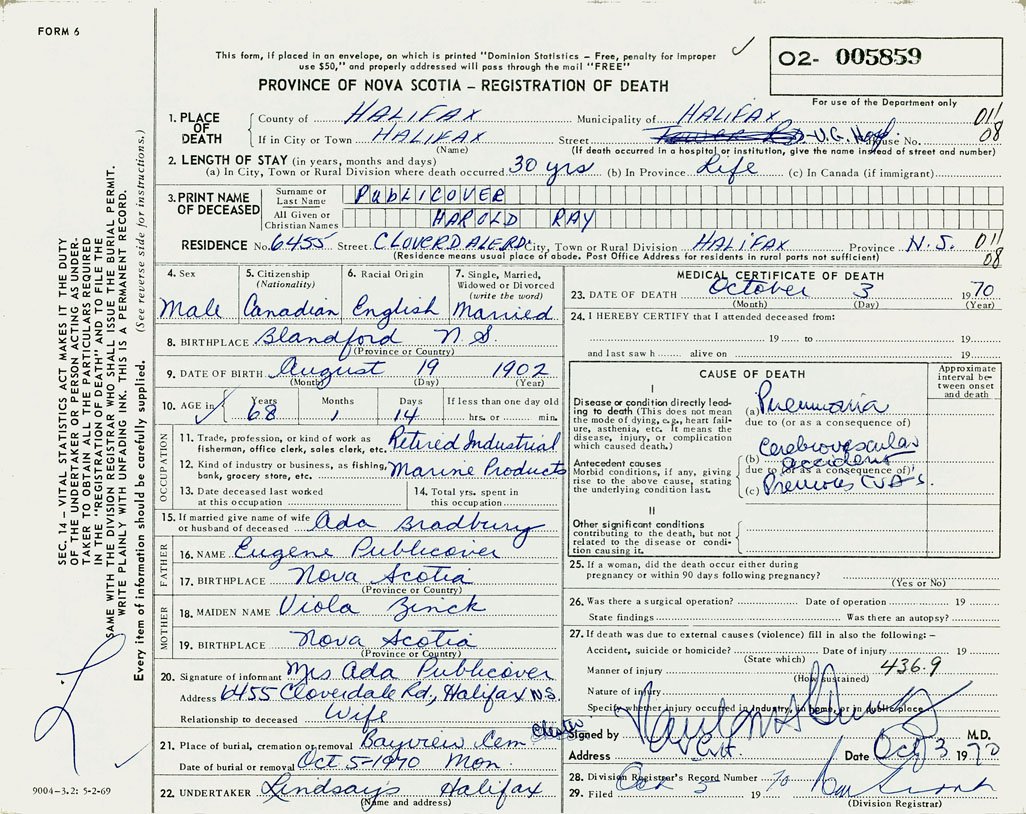 FORM 6
This form, if placed in an envelope, on which is printed "Dominion Statistics – Free, penalty for improper
use $50," and properly addressed will pass through the mail "FREE"
O2- 005859
PROVINCE OF NOVA SCOTIA – REGISTRATION OF DEATH
For use of the Department only
1. PLACE OF DEATH
County of HALIFAX Municipality of HALIFAX 011
If in City or Town HALIFAX Street V.G. Hosp. House No. 08
(Name) (If death occurred in a hospital or institution, give the name instead of street and number)
2. LENGTH OF STAY (in years, months and days)
(a) In City, Town or Rural Division where death occurred 30 yrs (b) In Province Life (c) In Canada (if immigrant)
3. PRINT NAME OF DECEASED
Surname or Last Name PUBLICOVER
All Given or Christian Names HAROLD RAY
RESIDENCE No. 6455 Street CLOVERDALE RD. City, Town or Rural Division HALIFAX Province N.S. 011
(Residence means usual place of abode. Post Office Address for residents in rural parts not sufficient) 08
4. Sex
Male
5. Citizenship
(Nationality)
Canadian
6. Racial Origin
English
7. Single, Married,
Widowed or Divorced
(write the word)
Married
8. BIRTHPLACE Blandford N.S.
(Province or Country)
9. DATE OF BIRTH August 19 1902
(Month) (Day) (Year)
10. AGE in Years Months Days If less than one day old
68 1 14 hrs. or min.
OCCUPATION
11. Trade, profession, or kind of work as
fisherman, office clerk, sales clerk, etc. Retired Industrial
12. Kind of industry or business, as fishing,
bank, grocery store, etc. Marine Products
13. Date deceased last worked
at this occupation
14. Total yrs. spent in
this occupation
15. If married give name of wife
or husband of deceased Ada Bradbury
FATHER
16. NAME Eugene Publicover
17. BIRTHPLACE Nova Scotia
(Province or Country)
MOTHER
18. MAIDEN NAME Viola Zinck
19. BIRTHPLACE Nova Scotia
(Province or Country)
20. Signature of informant Mrs Ada Publicover
Address 6455 Cloverdale Rd., Halifax N.S.
Relationship to deceased Wife
21. Place of burial, cremation or removal Bayview Cem Chester
Date of burial or removal Oct 5-1970 Mon.
22. UNDERTAKER Lindsay's Halifax
(Name and address)
MEDICAL CERTIFICATE OF DEATH
23. DATE OF DEATH October 3 1970
(Month) (Day) (Year)
24. I HEREBY CERTIFY that I attended deceased from:
19 to 19
and last saw h alive on 19
CAUSE OF DEATH
Approximate
interval be-
tween onset
and death
I
Disease or condition directly lead-
ing to death (This does not mean
the mode of dying, e.g., heart fail-
ure, asthenia, etc. It means the
disease, injury, or complication
which caused death.)
(a) Pneumonia
due to (or as a consequence of)
Antecedent causes
Morbid conditions, if any, giving
rise to the above cause, stating
the underlying condition last.
(b) Cerebrovascular accident
due to (or as a consequence of)
(c) Previous CVA's.
II
Other significant conditions
contributing to the death, but not
related to the disease or condi-
tion causing it.
25. If a woman, did the death occur either during
pregnancy or within 90 days following pregnancy?
(Yes or No)
26. Was there a surgical operation? Date of operation 19
State findings Was there an autopsy?
27. If death was due to external causes (violence) fill in also the following: –
Accident, suicide or homicide? Date of injury 19
(State which)
Manner of injury 436.9
(How sustained)
Nature of injury
Specify whether injury occurred in industry, in home, or in public place
Signed by M.D.
Address Date Oct 3 1970
28. Division Registrar's Record Number
29. Filed Oct 5 19 70
(Division Registrar)
SEC. 14 – VITAL STATISTICS ACT MAKES IT THE DUTY
OF THE UNDERTAKER OR PERSON ACTING AS UNDER-
TAKER TO OBTAIN ALL THE PARTICULARS REQUIRED
IN THE "REGISTRATION OF DEATH" AND TO FILE THE
SAME WITH THE DIVISION REGISTRAR WHO SHALL ISSUE THE BURIAL PERMIT.
WRITE PLAINLY WITH UNFADING INK. THIS IS A PERMANENT RECORD.
Every item of information should be carefully supplied. (See reverse side for instructions.)
9004-3.2: 5-2-69